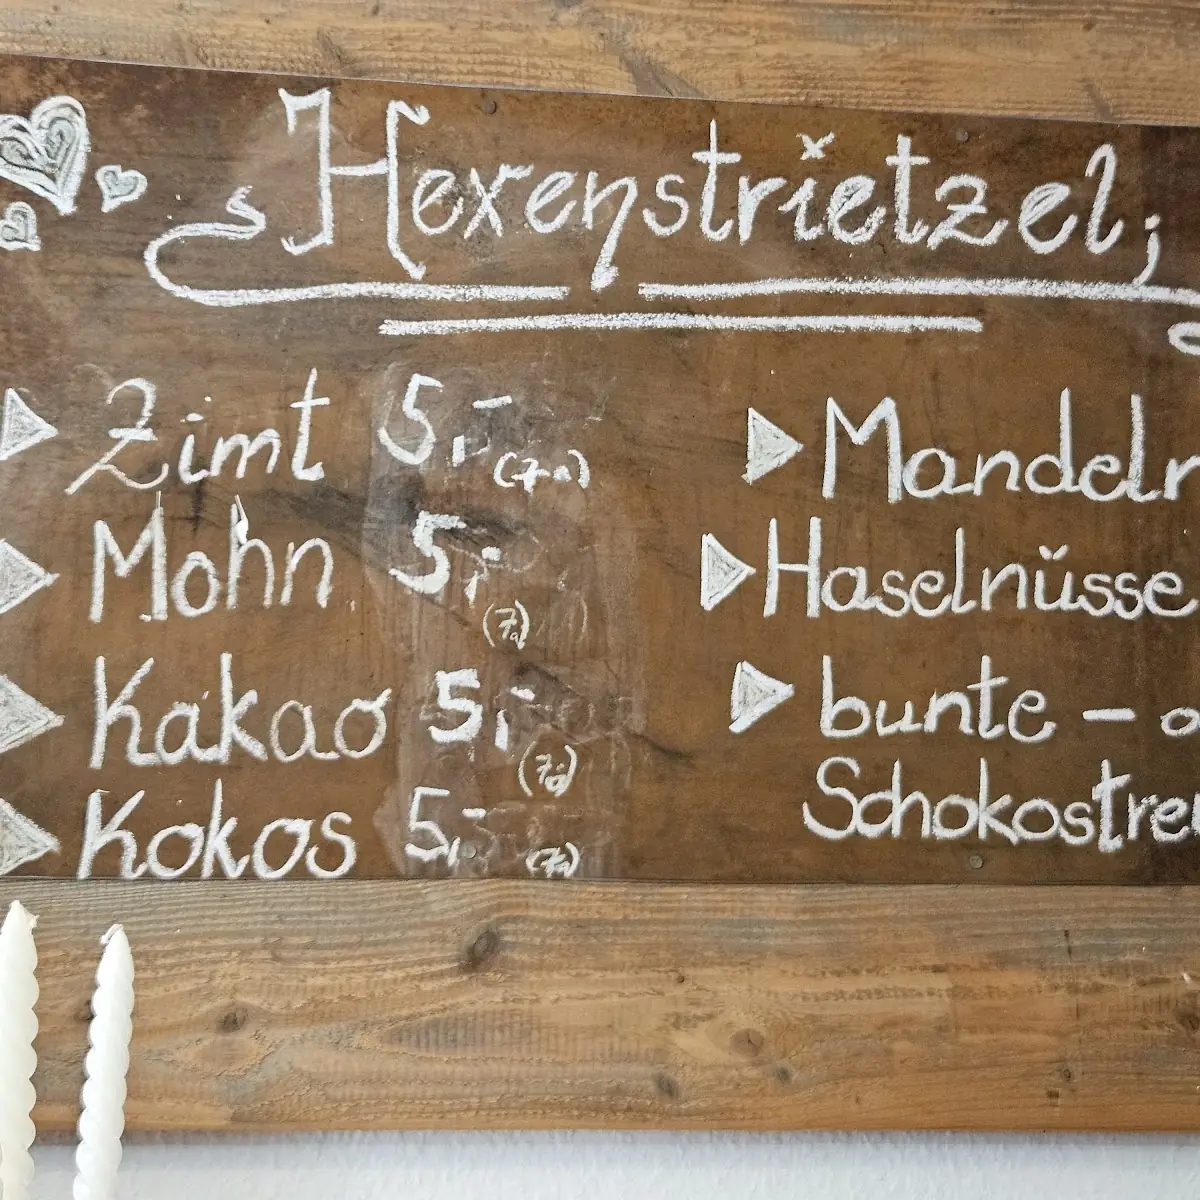 Hexenstrietzel;
Zimt 5,-
Mohn 5,-
Kakao 5,-
Kokos 5,-
Mandeln
Haselnüsse
bunte - o
Schokostre